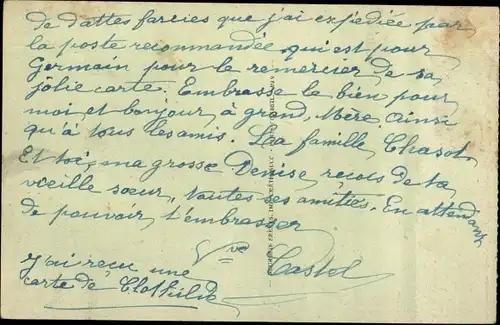 de dattes farcies que j'ai expédiée par
la poste recommandée qui est pour
Germain pour le remercier de sa
jolie carte. Embrasse le bien pour
moi et bonjour à grand. Mère. Ainsi
qu'à tous les amis. La famille Chasot.
Et toi, ma grosse Denise reçois de ta
vieille sœur, toutes ses amitiés. En attendant
de pouvoir t'embrasser
Vve Castel
J'ai reçu une
carte de Clothilde